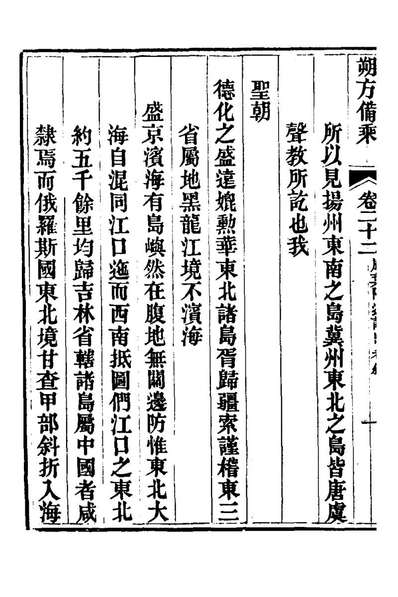 朔方備乘
卷二十二
一
所以見揚州東南之島冀州東北之島皆唐虞
聲教所訖也我
聖朝
德化之盛遠媲勲華東北諸島胥歸疆索謹稽東三
省屬地黑龍江境不濱海
盛京濱海有島嶼然在腹地無關邊防惟東北大
海自混同江口迤而西南抵圖們江口之東北
約五千餘里均歸吉林省轄諸島屬中國者咸
隸焉而俄羅斯國東北境甘查甲部斜折入海